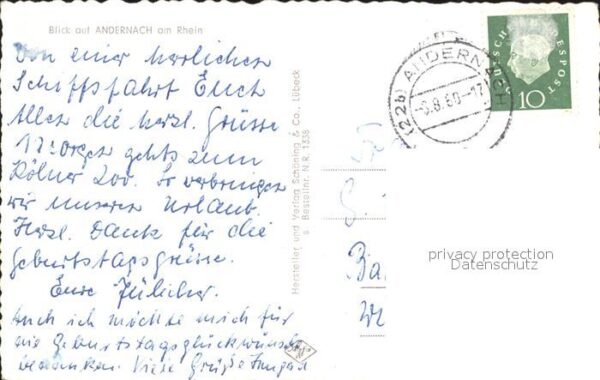 Blick auf ANDERNACH am Rhein
Von einer herrlichen
Schiffsfahrt Euch
Allen die herzl. Grüsse
Morgen gehts zum
Kölner Zoo. So verbringen
wir unseren Urlaub.
Herzl. Dank für die
Geburtstagsgrüsse.
Eure Jülicher.
Auch ich möchte mich für
die Geburtstagsglückwünsche
bedanken. Viele Grüße
Hersteller und Verlag Schöning & Co., Lübeck
Bestellnr. N.R. 1338
(22b) ANDERNACH
-8.8.60-17
DEUTSCHE BUNDESPOST
10
Ba.
privacy protection
Datenschutz